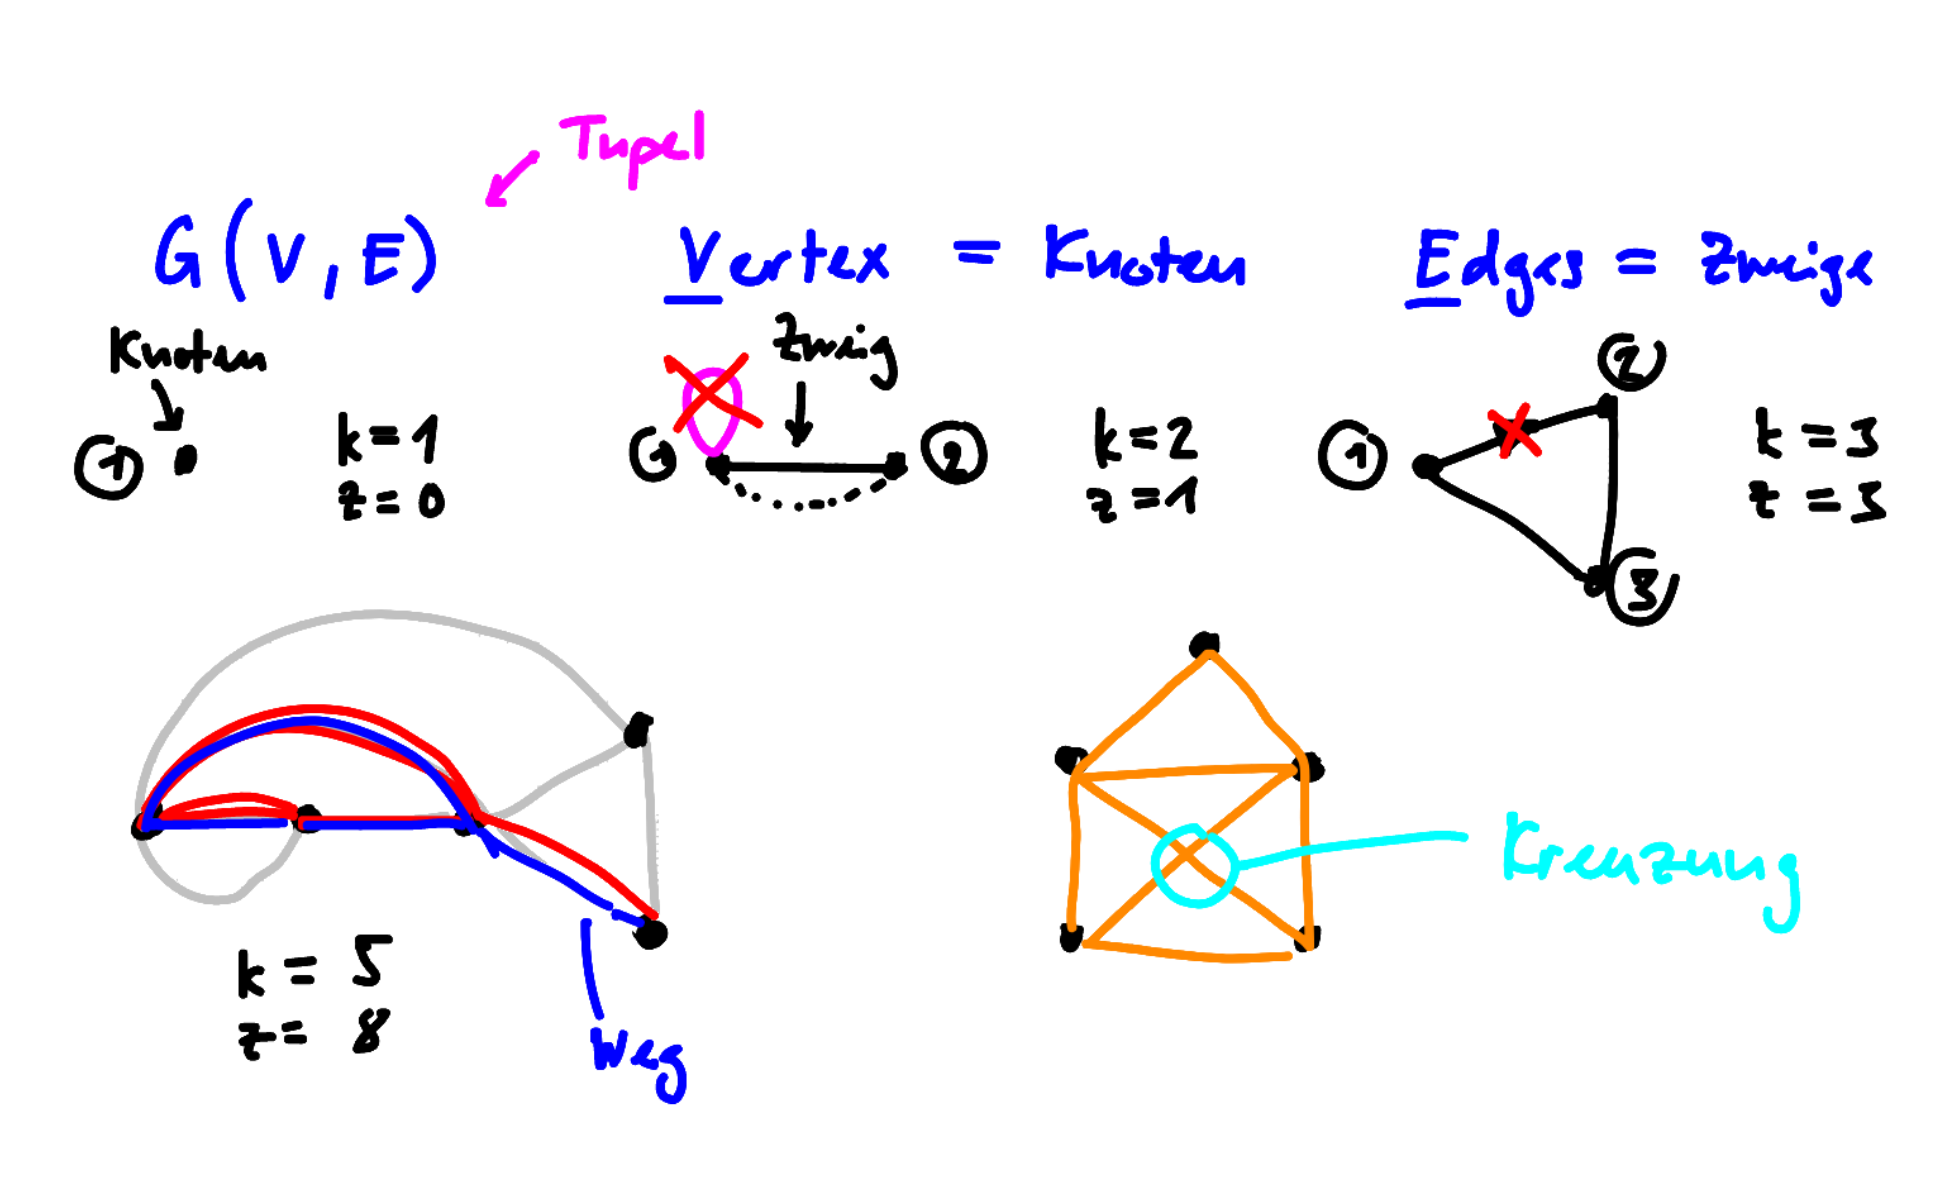 Tupel
G(V,E)
Vertex = Knoten
Edges = Zweige
Knoten
1
k=1
z=0
Zweig
1
2
k=2
z=1
1
2
3
k=3
z=3
k=5
z=8
Weg
Kreuzung